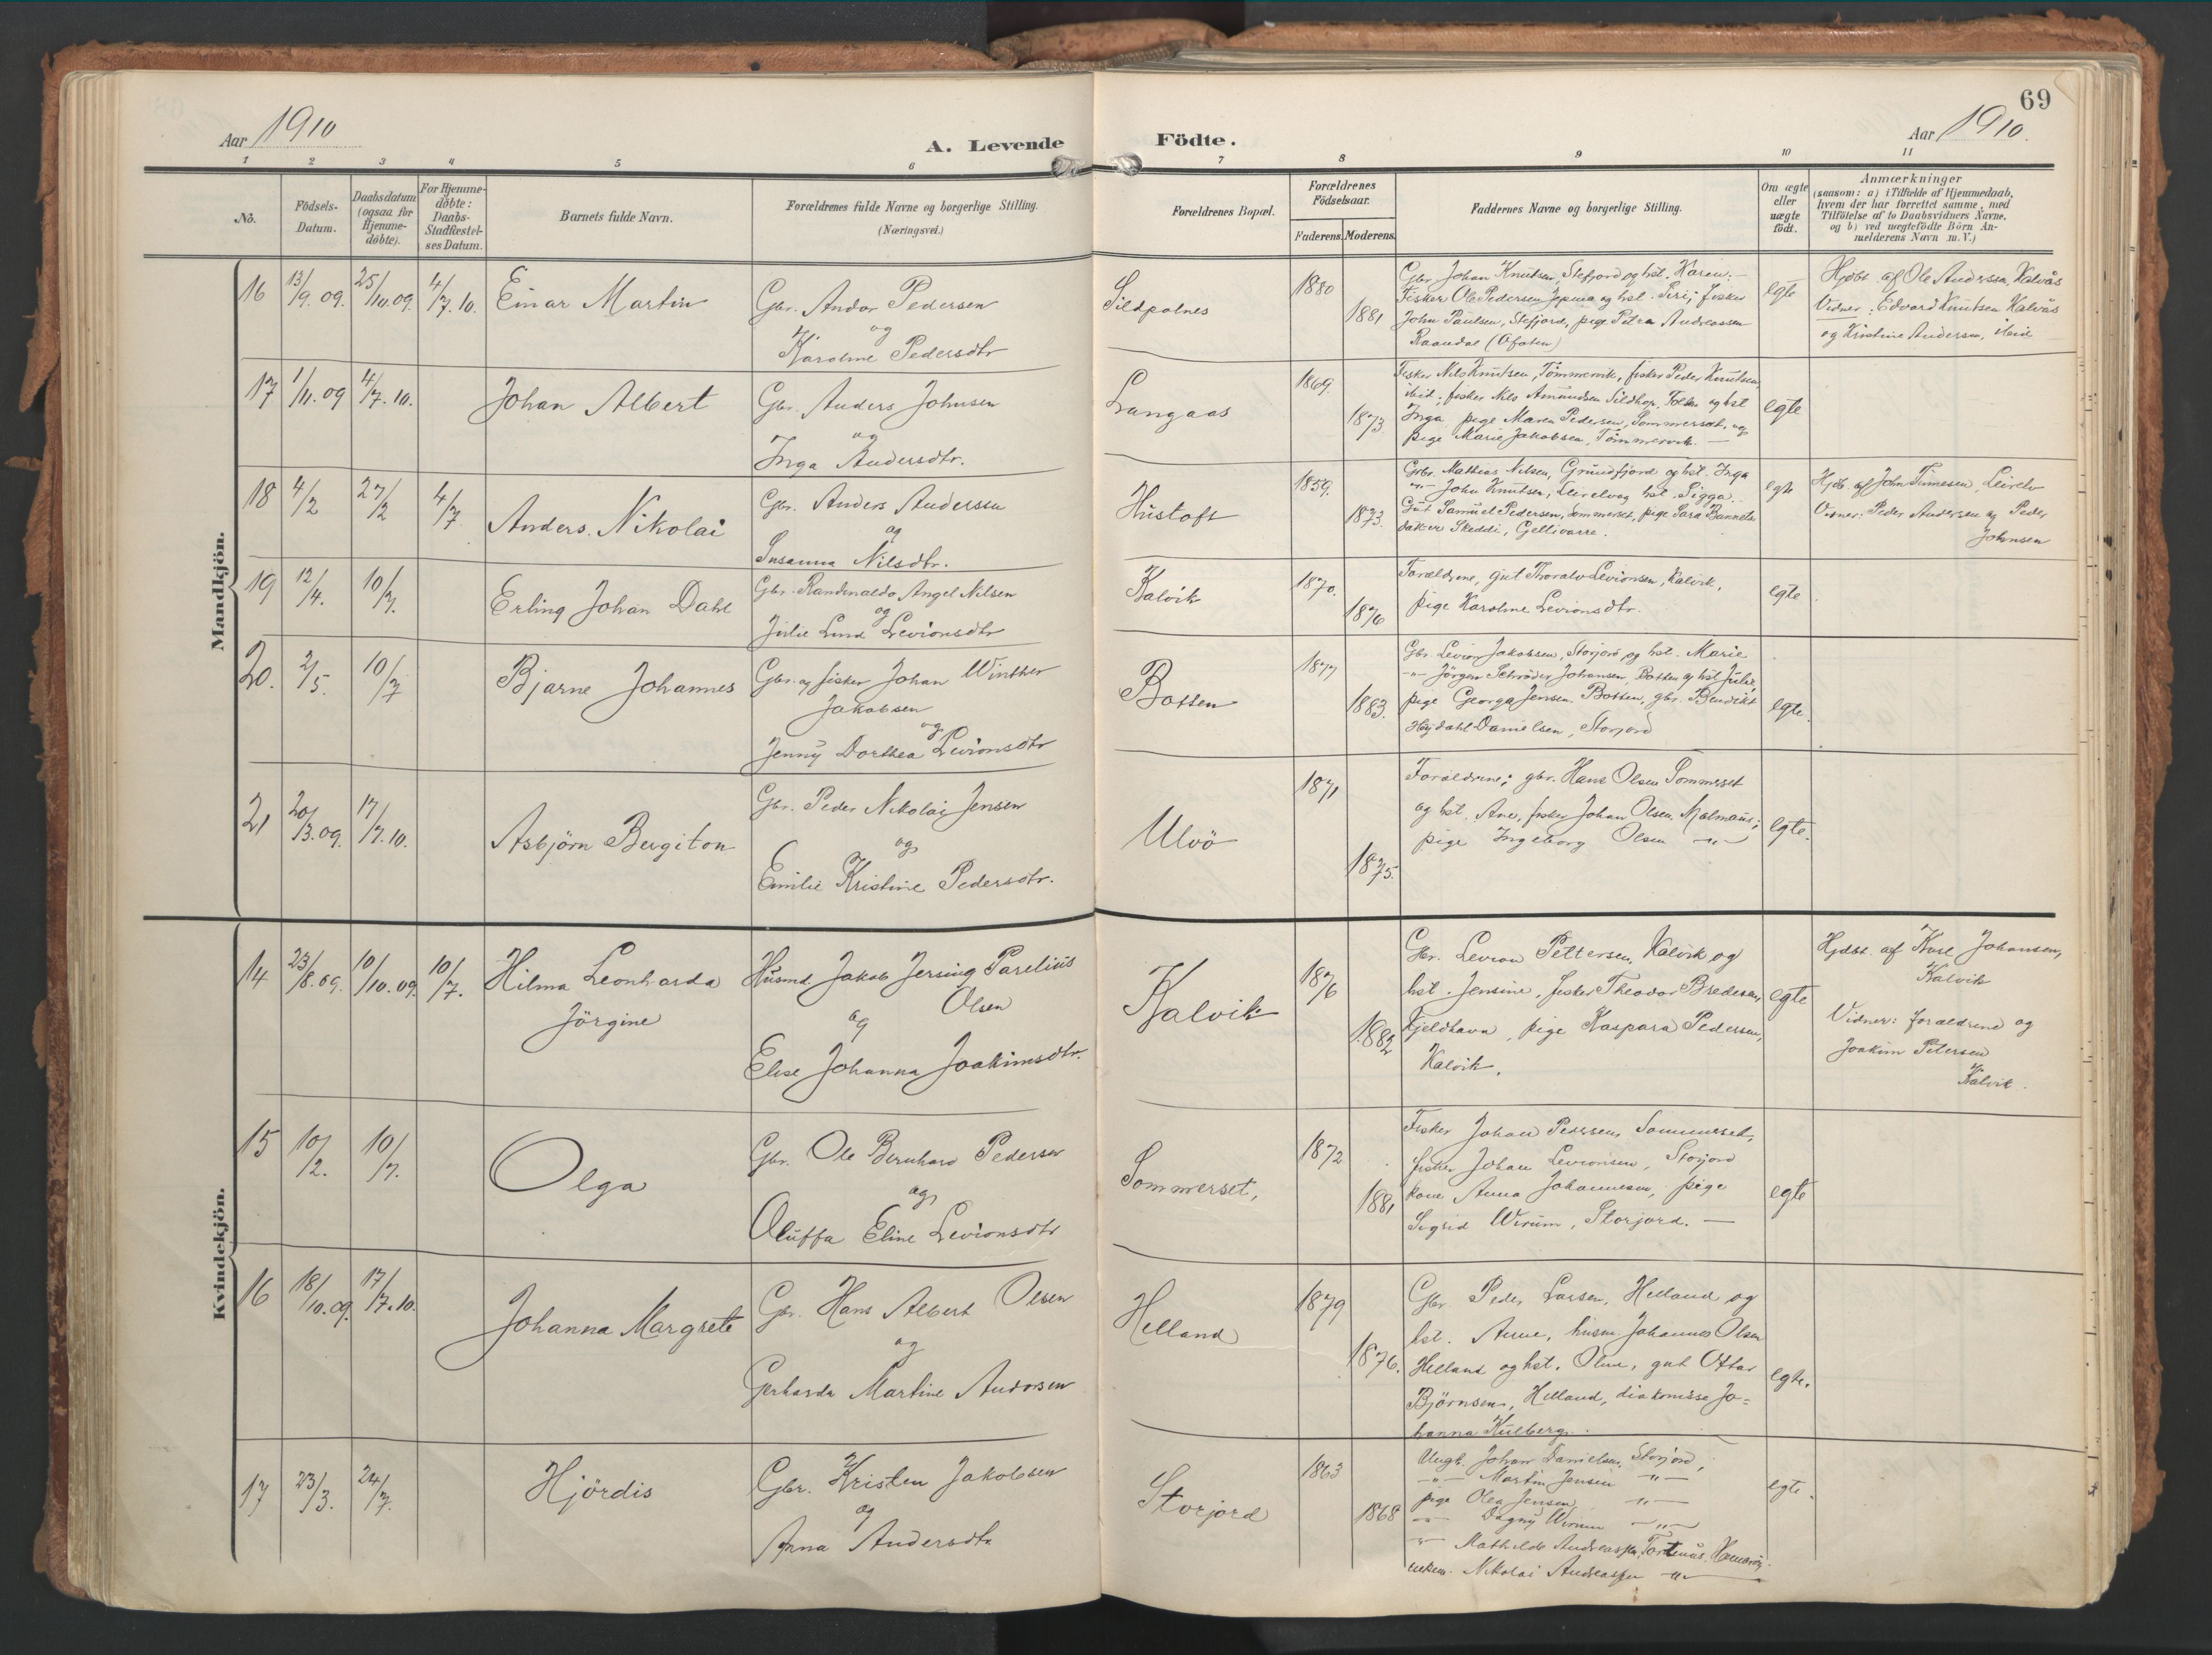 69
Aar 1910
A. Levende Födte.
Aar 1910.
1 2 3 4 5 6 7 8 9 10 11
No.
Födsels-
Datum.
Daabsdatum
(ogsaa for
Hjemme-
döbte).
For Hjemme-
döbte:
Daabs-
Stadfestel-
ses Datum.
Barnets fulde Navn.
Forældrenes fulde Navne og borgerlige Stilling.
(Næringsvei.)
Forældrenes Bopæl.
Forældrenes
Födselsaar.
Faderens. Moderens.
Faddernes Navne og borgerlige Stilling.
Om ægte
eller
uægte
födt.
Anmærkninger
(saasom: a) i Tilfælde af Hjemmedaab,
hvem der har forrettet samme, med
Tilföielse af to Daabsvidners Navne,
og b) ved uægtefödte Börn An-
melderens Navn m.V.)
Mandkjön.
16 13/9. 09. 25/10.09. 4/7. 10. Einar Martin
Gbr. Andor Pedersen
og
Karoline Pedersdtr
Sildpolnes
1880
1881
Gbr. Johan Knutsen, Stefjord og hst. Karen.
Fisker Ole Pedersen og hst. Siri; fisker
John Paulsen, Stefjord, pige Petra Andreassen
Raandal (Ofoten)
egte
Hjdbt. af Ole Anderssen, Kalvås
Vidner: Edvard Knutsen Kalvås
og Kristine Andersen, ibid
17 1/11. 09 4/7. 10. Johan Albert
Gbr. Anders Johnsen
og
Inga Andersdtr.
Langaas
1869.
1873.
Fisker Nils Knutsen, Tömmervik, fisker Peder Knutsen,
ibid; fisker Nils Amundsen Sildhop, og hst
Inga pige Maren Pedersen, Sommerset, og
pige Marie Jakobsen, Tömmervik. —
egte
18 4/2 27/2 4/7 Anders Nikolai
Gbr. Anders Anderssen
og
Susanna Nilsdtr.
Hustoft
1859.
1873.
Gbr. Mathias Nilsen, Grundfjord og hst. Inga
-"- John Knutsen, Leirelvag hst. Sigga.
Gut Samuel Pedersen, Sommerset, pige Sara
Skeddi, Gellivarre.
egte
Hjdb. af John Leirelv
Vidner: Peder Andersen og Peder
Johnsen
19 12/4. 10/7. Erling Johan Dahl
Gbr. Randinaldo Angel Nilsen
og
Julie Lund Levionsdtr
Kalvik
1870.
1876
Forældrene, gut Thoralv Levionsen, Kalvik,
pige Karoline Levionsdtr.
egte
20. 2/5. 10/7 Bjarne Johannes
Gbr. og fisker Johan Winther
Jakobsen
og
Jenny Dorthea Levionsdtr
Botten
1877
1883.
Gbr. Levion Jakobsen, Storjord og hst. Marie
-"- Jörgen Schröder Johansen, Botten og hst Julie,
pige Georga Jensen Botten, gbr. Bendikt
Heydahl Danielsen, Storjord
egte.
21 20/3. 09. 17/7. 10. Asbjörn Bergiton
Gbr. Peder Nikolai Jensen
og
Emilie Kristine Pedersdtr.
Ulvö
1871
1875.
Forældrene; gbr. Hans Olsen Sommerset
og hst. Ane, fisker Johan Olsen,
pige Ingeborg Olsen -"-
egte.
Kvindekjön.
14 23/8. 09. 10/10. 09. 10/7. Hilma Leonharda
Jörgine
Husmd. Jakob Jersing Parelius
Olsen
og
Elise Johanna Joakimsdtr.
Kalvik
1876
1882
Gbr. Levion Pettersen, Kalvik og
hst. Jensine, fisker Theodor Bredesen,
Kjeldhavn, pige Kaspara Pedersen,
Kalvik.
egte
Hjdbt. af Johansen,
Kalvik
Vidner: forældrene og
Joakim Petersen
Kalvik.
15 10/2. 10/7. Olga
Gbr. Ole Bernhard Pedersen
og
Oluffa Eline Levionsdtr
Sommerset,
1872
1881
Fisker Johan Pedersen, Sommerset,
fisker Johan Levionsen, Storjord
kone Anna Johannesen, pige
Sigrid Wirum, Storjord. —
egte
16 18/10. 09. 17/7. 10. Johanna Margrete
Gbr. Hans Albert Olsen
og
Gerharda Martine Andorsen
Helland
1879
1876.
Gbr. Peder Larsen, Helland og
hst. Anne, husm. Johannes Olsen
Helland og hst. Oline, gut Ottar
Björnsen, Helland, diakonisse Jo-
hanna Kulberg.
egte.
17 23/3. 24/7. Hjördis
Gbr. Kristen Jakobsen
og
Anna Andersdtr
Storjord
1863
1868
Ungk. Johan Danielsen, Storjord,
-"- Martin Jensen -"-
pige Olea Jensen -"-
-"- Dagny Wirum -"-
-"- Mathilde Andreassen, Hamarøy.
Nikolai Andreassen -"-
egte.